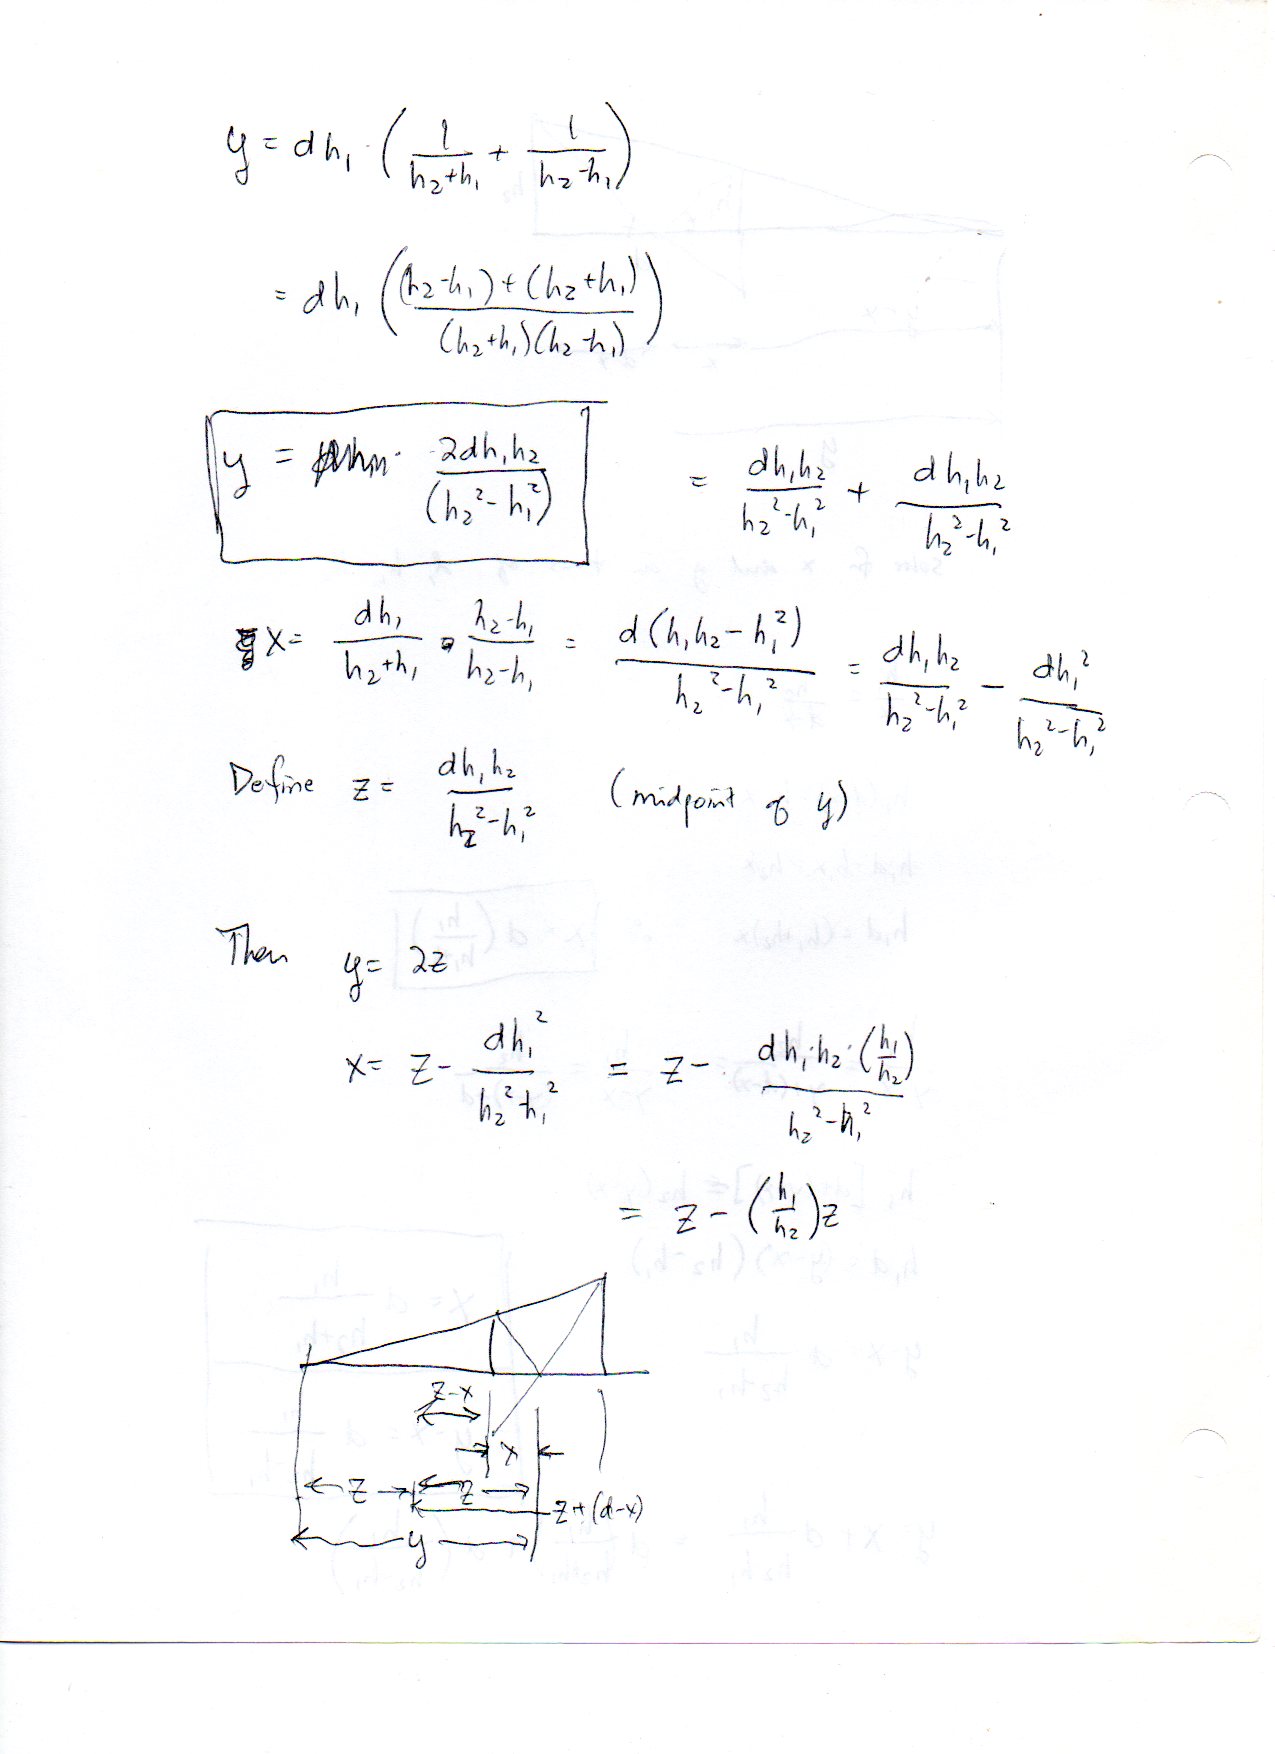 y = dh₁ · (1/(h₂+h₁) + 1/(h₂-h₁))
= dh₁ (((h₂-h₁)+(h₂+h₁))/((h₂+h₁)(h₂-h₁)))
y = 2dh₁h₂/(h₂²-h₁²) = dh₁h₂/(h₂²-h₁²) + dh₁h₂/(h₂²-h₁²)
x = dh₁/(h₂+h₁) · (h₂-h₁)/(h₂-h₁) = d(h₁h₂-h₁²)/(h₂²-h₁²) = dh₁h₂/(h₂²-h₁²) - dh₁²/(h₂²-h₁²)
Define z = dh₁h₂/(h₂²-h₁²) (midpoint of y)
Then y = 2z
x = z - dh₁²/(h₂²-h₁²) = z - dh₁·h₂·(h₁/h₂)/(h₂²-h₁²)
= z - (h₁/h₂)z
z-x
x
z z
z+(d-x)
y